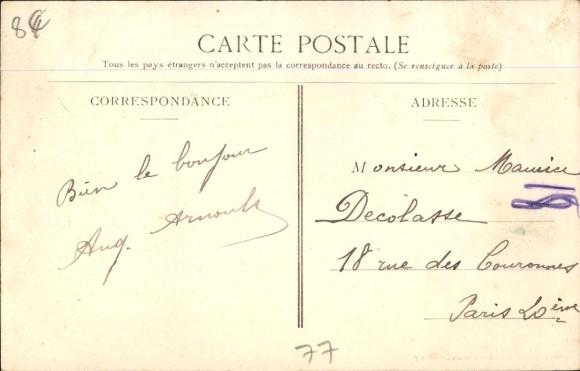 CARTE POSTALE
Tous les pays étrangers n'acceptent pas la correspondance au recto. (Se renseigner à la poste)
CORRESPONDANCE
ADRESSE
Bien le bonjour
Aug. Arnoult
Monsieur Maurice
Decolasse
18 rue des Couronnes
Paris 20ème
77